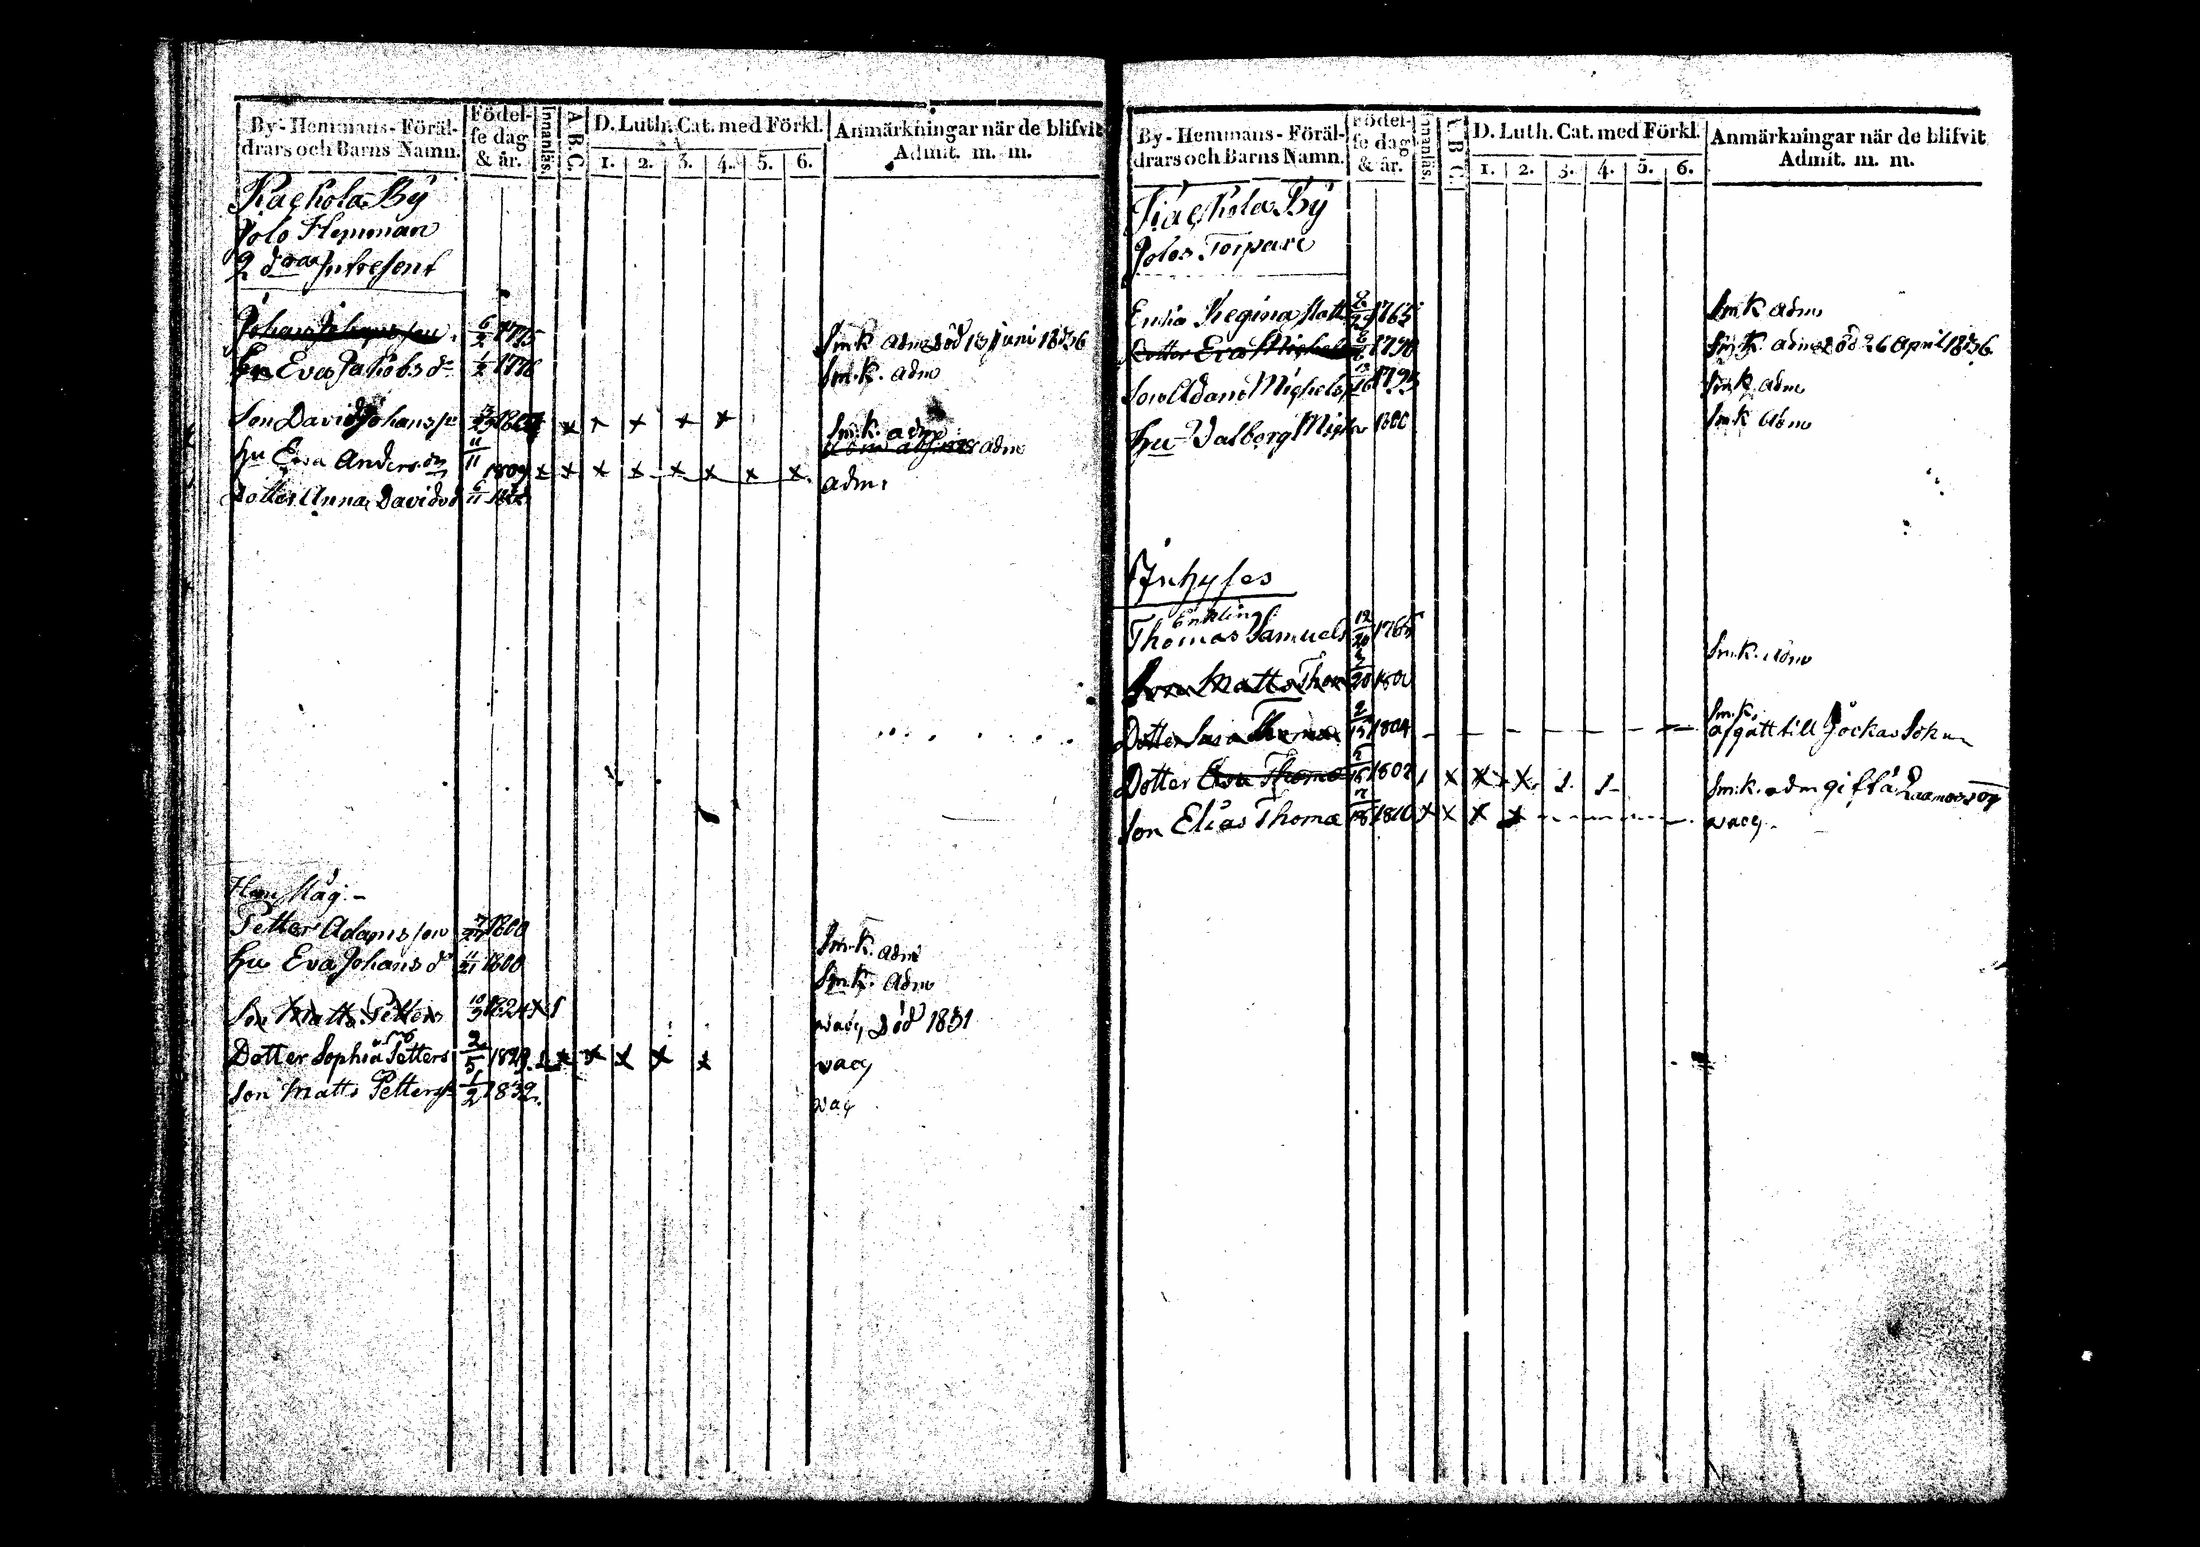 By-Hemmans-Föräl-
drars och Barns Namn.
Födel-
se dag
& år.
Innanläs.
A. B. C.
D. Luth. Cat. med Förkl.
1. 2. 3. 4. 5. 6.
Anmärkningar när de blifvit
Admit. m. m.
By
Jolo Hemman
2 dra Intresent
Johan Johansson 6/2 1775 Smk adm död 13 juni 1836
hu Eva Jakobs dr 1/2 1776 Sm.k. adm
Son David Johanss x x x x x Sm.k. adm
hu Eva Anders dr 11/11 1809 x x x x x x x x adm
adm.
Dotter Anna Davids d 6/11
Måg.
Petter Adamsson 1800 Sm.k. adm
hu Eva Johans dr 11/21 1800 Smk. adm
Son Matts Petters 10/3 1824 x 1 vacc död 1831
Dotter Sophia Petters 2/5 1829 x x x x x x vacc
Son Matts Petterss 1/2 1832. vac
By-Hemmans-Föräl-
drars och Barns Namn.
Födel-
se dag
& år.
Innanläs.
A. B. C.
D. Luth. Cat. med Förkl.
1. 2. 3. 4. 5. 6.
Anmärkningar när de blifvit
Admit. m. m.
By
Jolos Torpare
Enka Regina Matts 1765 Smk adm
Dotter Eva Michels 1790 Smk. adm död 26 April 1836
Son Adam Michels 1795 Smk. adm
hu Valborg 1800 Smk adm
Inhyses
Enkling
Thomas Samuels 12/20 1765 Sm.k. adm
Son Matts Thom /20 1800
Dotter Sara Thomæ 2/15 1804 Sm.k.
afgått till Jockas Sokn
Dotter Eva Thomæ 1802 1 x x x 1 1 Sm.k. adm gift å
Son Elias Thomæ 7/18 1810 x x x x vacc.